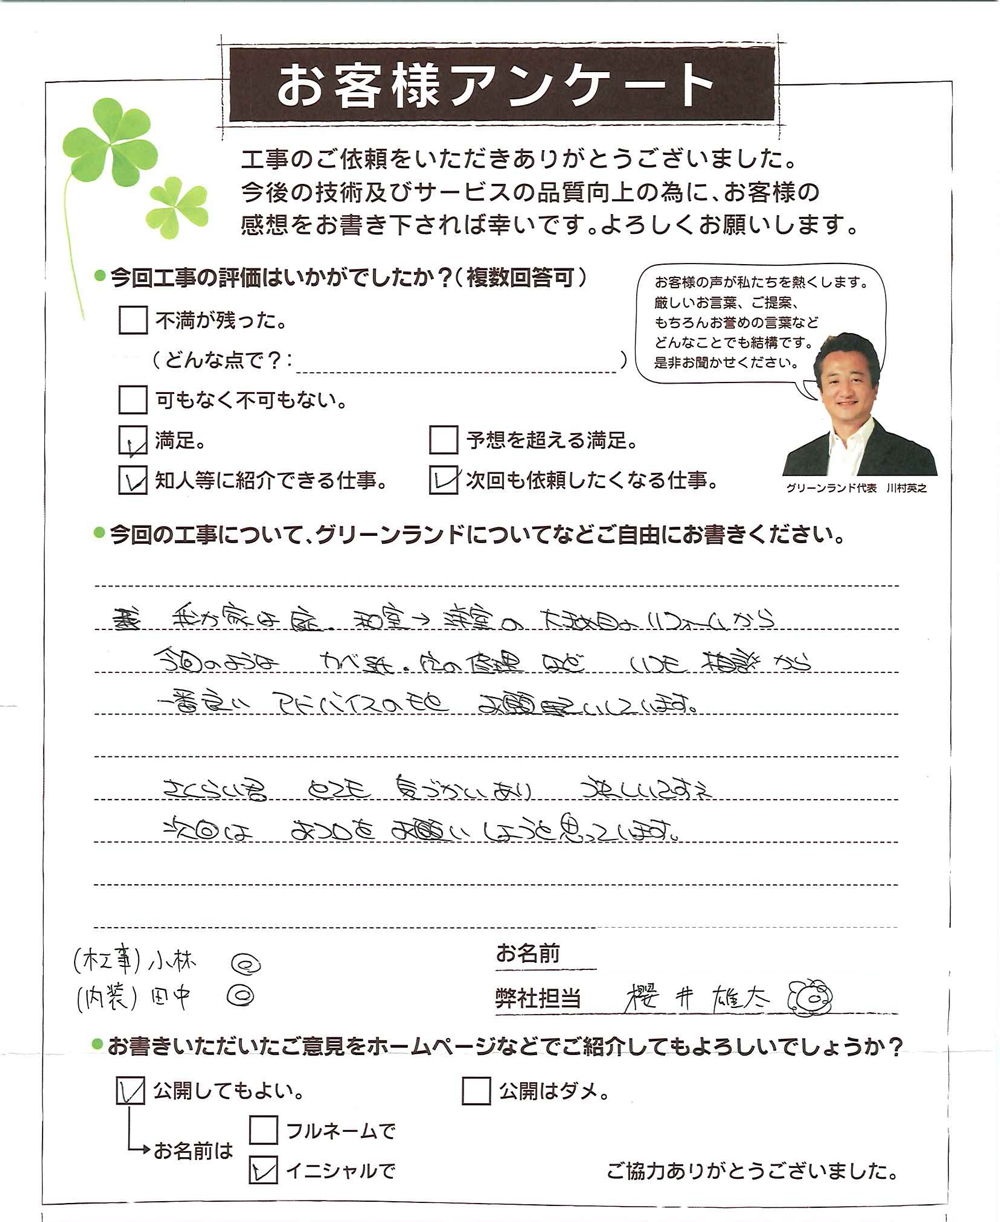 お客様アンケート
工事のご依頼をいただきありがとうございました。
今後の技術及びサービスの品質向上の為に、お客様の
感想をお書き下されば幸いです。よろしくお願いします。
今回工事の評価はいかがでしたか?(複数回答可)
不満が残った。
(どんな点で?: )
可もなく不可もない。
満足。
予想を超える満足。
知人等に紹介できる仕事。
次回も依頼したくなる仕事。
お客様の声が私たちを熱くします。
厳しいお言葉、ご提案、
もちろんお誉めの言葉など
どんなことでも結構です。
是非お聞かせください。
グリーンランド代表 川村英之
今回の工事について、グリーンランドについてなどご自由にお書きください。
我が家は 和室→洋室の 大改造 リフォームから
今回のような カベ紙・ の修理 など いつも 相談から
一番良い アドバイスのもと お願いしています。
さくらい君 とても 気づかいあり 楽しいですネ
次回は おフロを お願い しようと思っています。
(木工事) 小林 ◎
(内装) 田中 ◎
お名前
弊社担当 櫻井雄太
お書きいただいたご意見をホームページなどでご紹介してもよろしいでしょうか?
公開してもよい。
公開はダメ。
お名前は
フルネームで
イニシャルで
ご協力ありがとうございました。